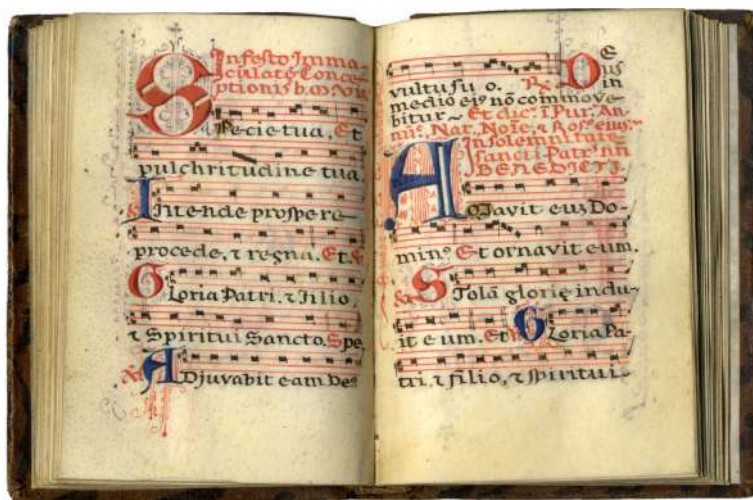 In festo Imma-
culate Conce-
ptionis b. M. Vir
Specie tua, Et
pulchritudine tua.
Intende prospere
procede, ⁊ regna. Et
Gloria Patri, ⁊ Filio,
⁊ Spiritui Sancto. Spe
Adjuvabit eam De9
vultu suo. Deus
in
medio ej9 nō commove-
bitur Et dic. ī Pur. An-
nūc. Nat. Noīe, ⁊ Ros. ejus.
In solemnitate
Sancti Patr. nri
BENEDICTI.
Amavit eum Do-
min9 Et ornavit eum.
Stolā glorię indu-
it eum. Et Gloria Pa-
tri, ⁊ filio, ⁊ spiritui